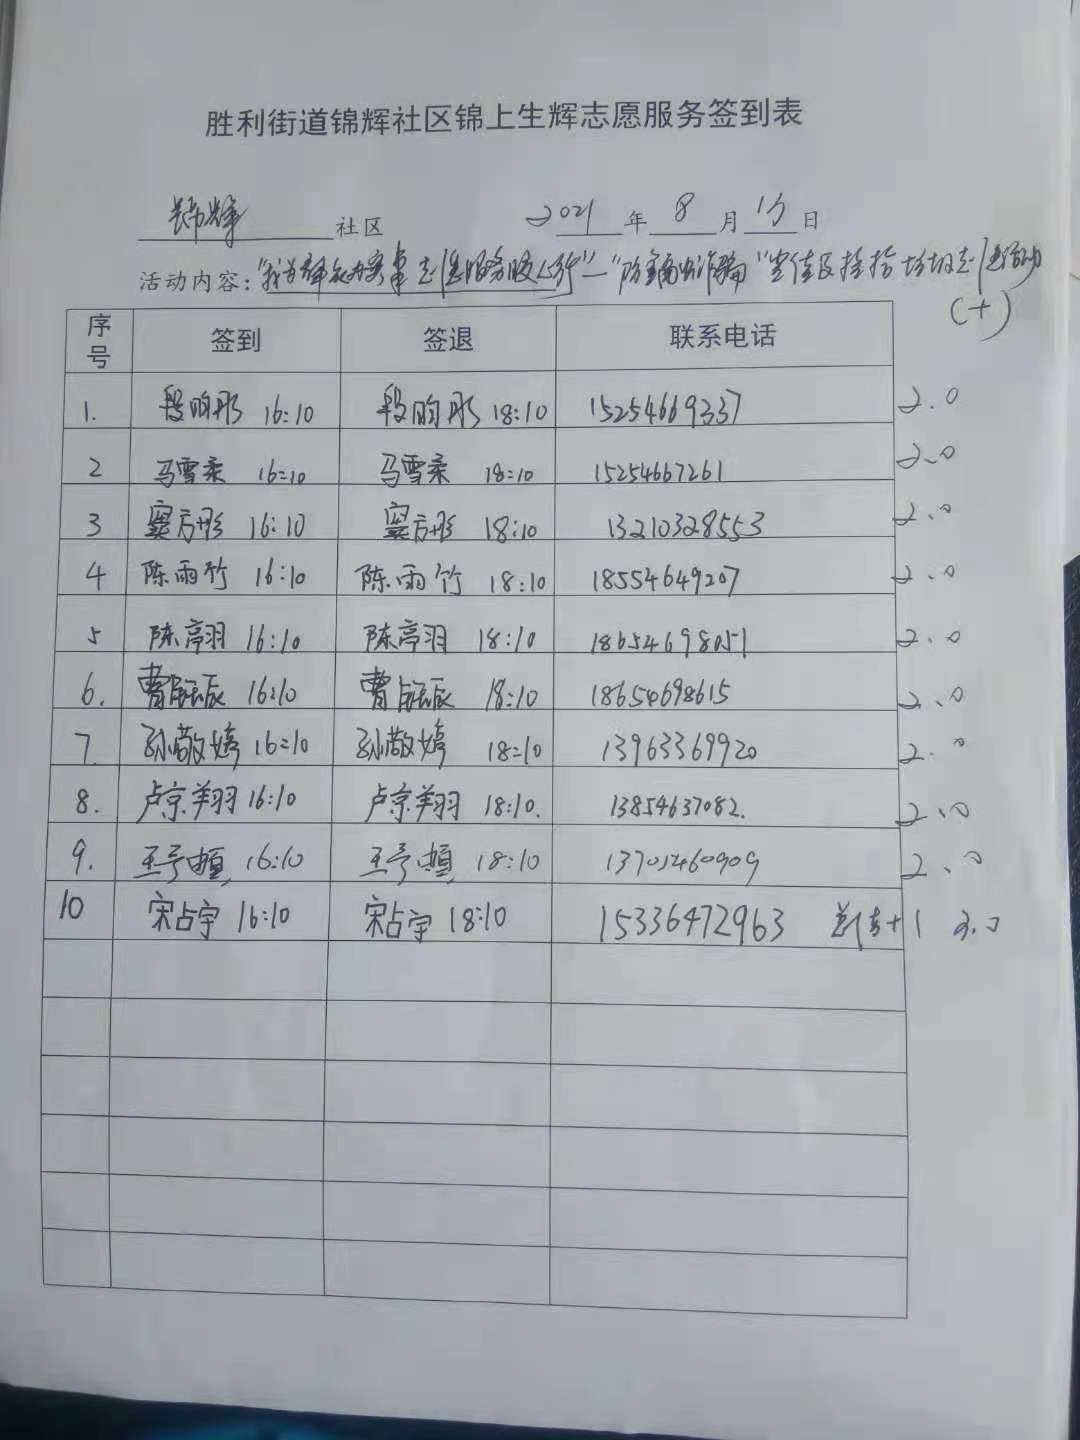 胜利街道锦辉社区锦上生辉志愿服务签到表
锦辉 社区 2021 年 8 月 15 日
活动内容：“我为群众办实事志愿服务暖人行”—“防电诈骗”宣传及捡拾垃圾志愿活动
(十)
序号 签到 签退 联系电话
1. 段昀彤 16:10 段昀彤 18:10 15254669337 2.0
2 马雪柔 16:10 马雪柔 18:10 15254667261 2.0
3 窦方彤 16:10 窦方彤 18:10 13210328553 2.0
4 陈雨竹 16:10 陈雨竹 18:10 18554649207 2.0
5 陈亭羽 16:10 陈亭羽 18:10 18654698051 2.0
6. 曹辰 16:10 曹辰 18:10 18654698615 2.0
7. 孙敬婷 16:10 孙敬婷 18:10 13963369920 2.0
8. 卢京翔 16:10 卢京翔 18:10. 13854637082. 2.0
9. 王 16:10 王 18:10 13705460909 2.0
10 宋占宇 16:10 宋占宇 18:10 15336472963 +1 3.0